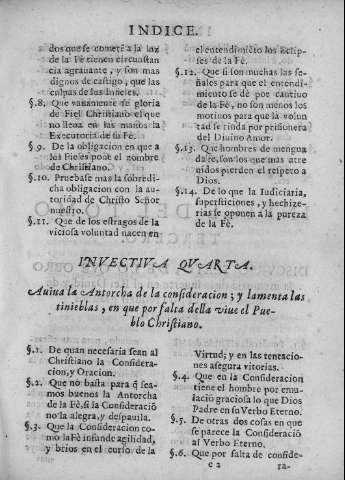 INDICE.
dos que se cometē a la luz
de la Fè tienen circunstan
cia agrauante, y son mas
dignos de castigo, que las
culpas de los Infieles.
§.8. Que vanamente se gloria
de Fiel Christiano el que
no lleua en las manos la
Executoria de su Fè.
§.9. De la obligacion en que a
los Fieles pone el nombre
de Christiano.
§.10. Pruebase mas la sobredi-
cha obligacion con la au-
toridad de Christo Señor
nuestro.
§.11. Que de los estragos de la
viciosa voluntad nacen en
el entendimiēto los Eclip-
ses de la Fè.
§.12. Que si son muchas las se-
ñales para que el entendi-
miento se dè por cautiuo
de la Fè, no son menos los
motiuos para que la volun
tad se rinda por prisionera
del Diuino Amor.
§.13. Que hombres de mengua
da fe, son los que mas atre
uidos pierden el respeto a
Dios.
§.14. De lo que la Iudiciaria,
supersticiones, y hechize-
rias se oponen a la pureza
de la Fè.
INVECTIVA QVARTA.
Auiua la Antorcha de la consideracion; y lamenta las
tinieblas, en que por falta della viue el Pue-
blo Christiano.
§.1. De quan necesaria sean al
Christiano la Considera-
cion, y Oracion.
§.2. Que no basta para q̄ sea-
mos buenos la Antorcha
de Fè, si la Consideraciō
no la alegra, y despauila.
§.3. Que la Consideracion co-
mo la Fè infunde agilidad,
y brios en el curso de la
Virtud; y en las tentaciones
asegura vitorias.
§.4. Que en la Consideracion
tiene el hombre por emu-
lació graciosa lo que Dios
Padre en su Verbo Eterno.
§.5. De otras dos cosas en que
se parece la Consideració
al Verbo Eterno.
§.6. Que por falta de conside-
e 2 ra-